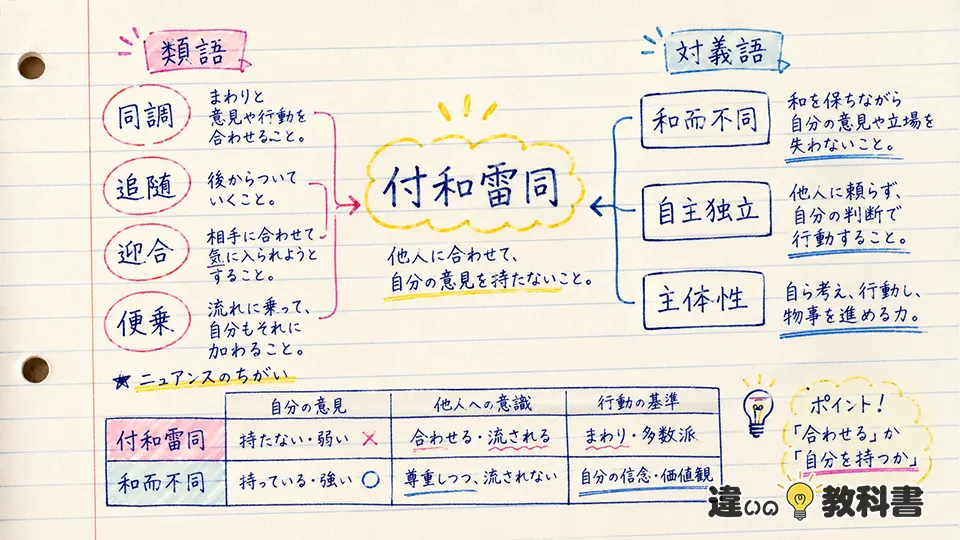 類語
同調
まわりと
意見や行動を
合わせること。
追随
後からついて
いくこと。
迎合
相手に合わせて
気に入られようと
すること。
便乗
流れに乗って、
自分もそれに
加わること。
付和雷同
他人に合わせて、
自分の意見を持たないこと。
対義語
和而不同
和を保ちながら
自分の意見や立場を
失わないこと。
自主独立
他人に頼らず、
自分の判断で
行動すること。
主体性
自ら考え、行動し、
物事を進める力。
★ ニュアンスのちがい
自分の意見 他人への意識 行動の基準
付和雷同 持たない・弱い × 合わせる・流される まわり・多数派
和而不同 持っている・強い ○ 尊重しつつ、流されない 自分の信念・価値観
ポイント!
「合わせる」か
「自分を持つか」
違いの教科書